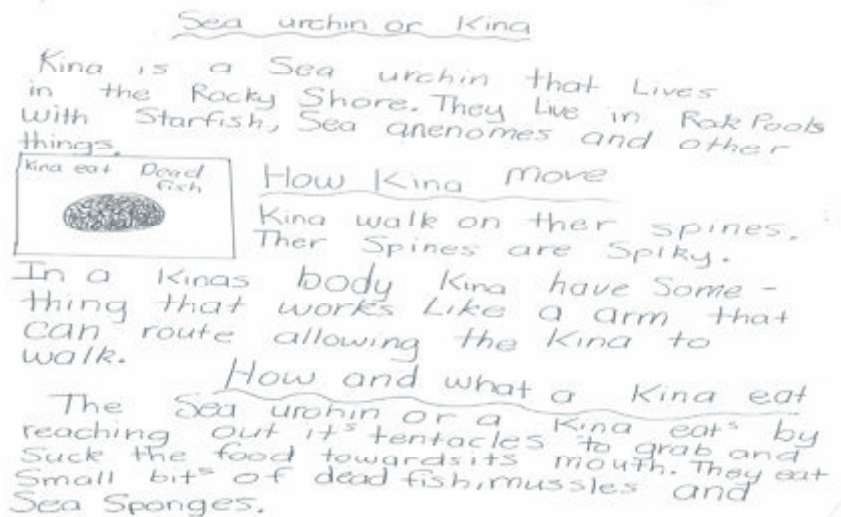 Sea urchin or Kina
Kina is a Sea urchin that Lives
in the Rocky Shore. They Live in Rok Pools
with Starfish, Sea anenomes and other
things.
Kina eat Dead
fish
How Kina move
Kina walk on ther spines.
Ther Spines are Spiky.
In a Kinas body Kina have Some-
thing that works Like a arm that
can route allowing the Kina to
walk.
How and what a Kina eat
The Sea urchin or a Kina eats by
reaching out it's tentacles to grab and
Suck the food towards its mouth. They eat
Small bits of dead fish, mussles and
Sea Sponges.